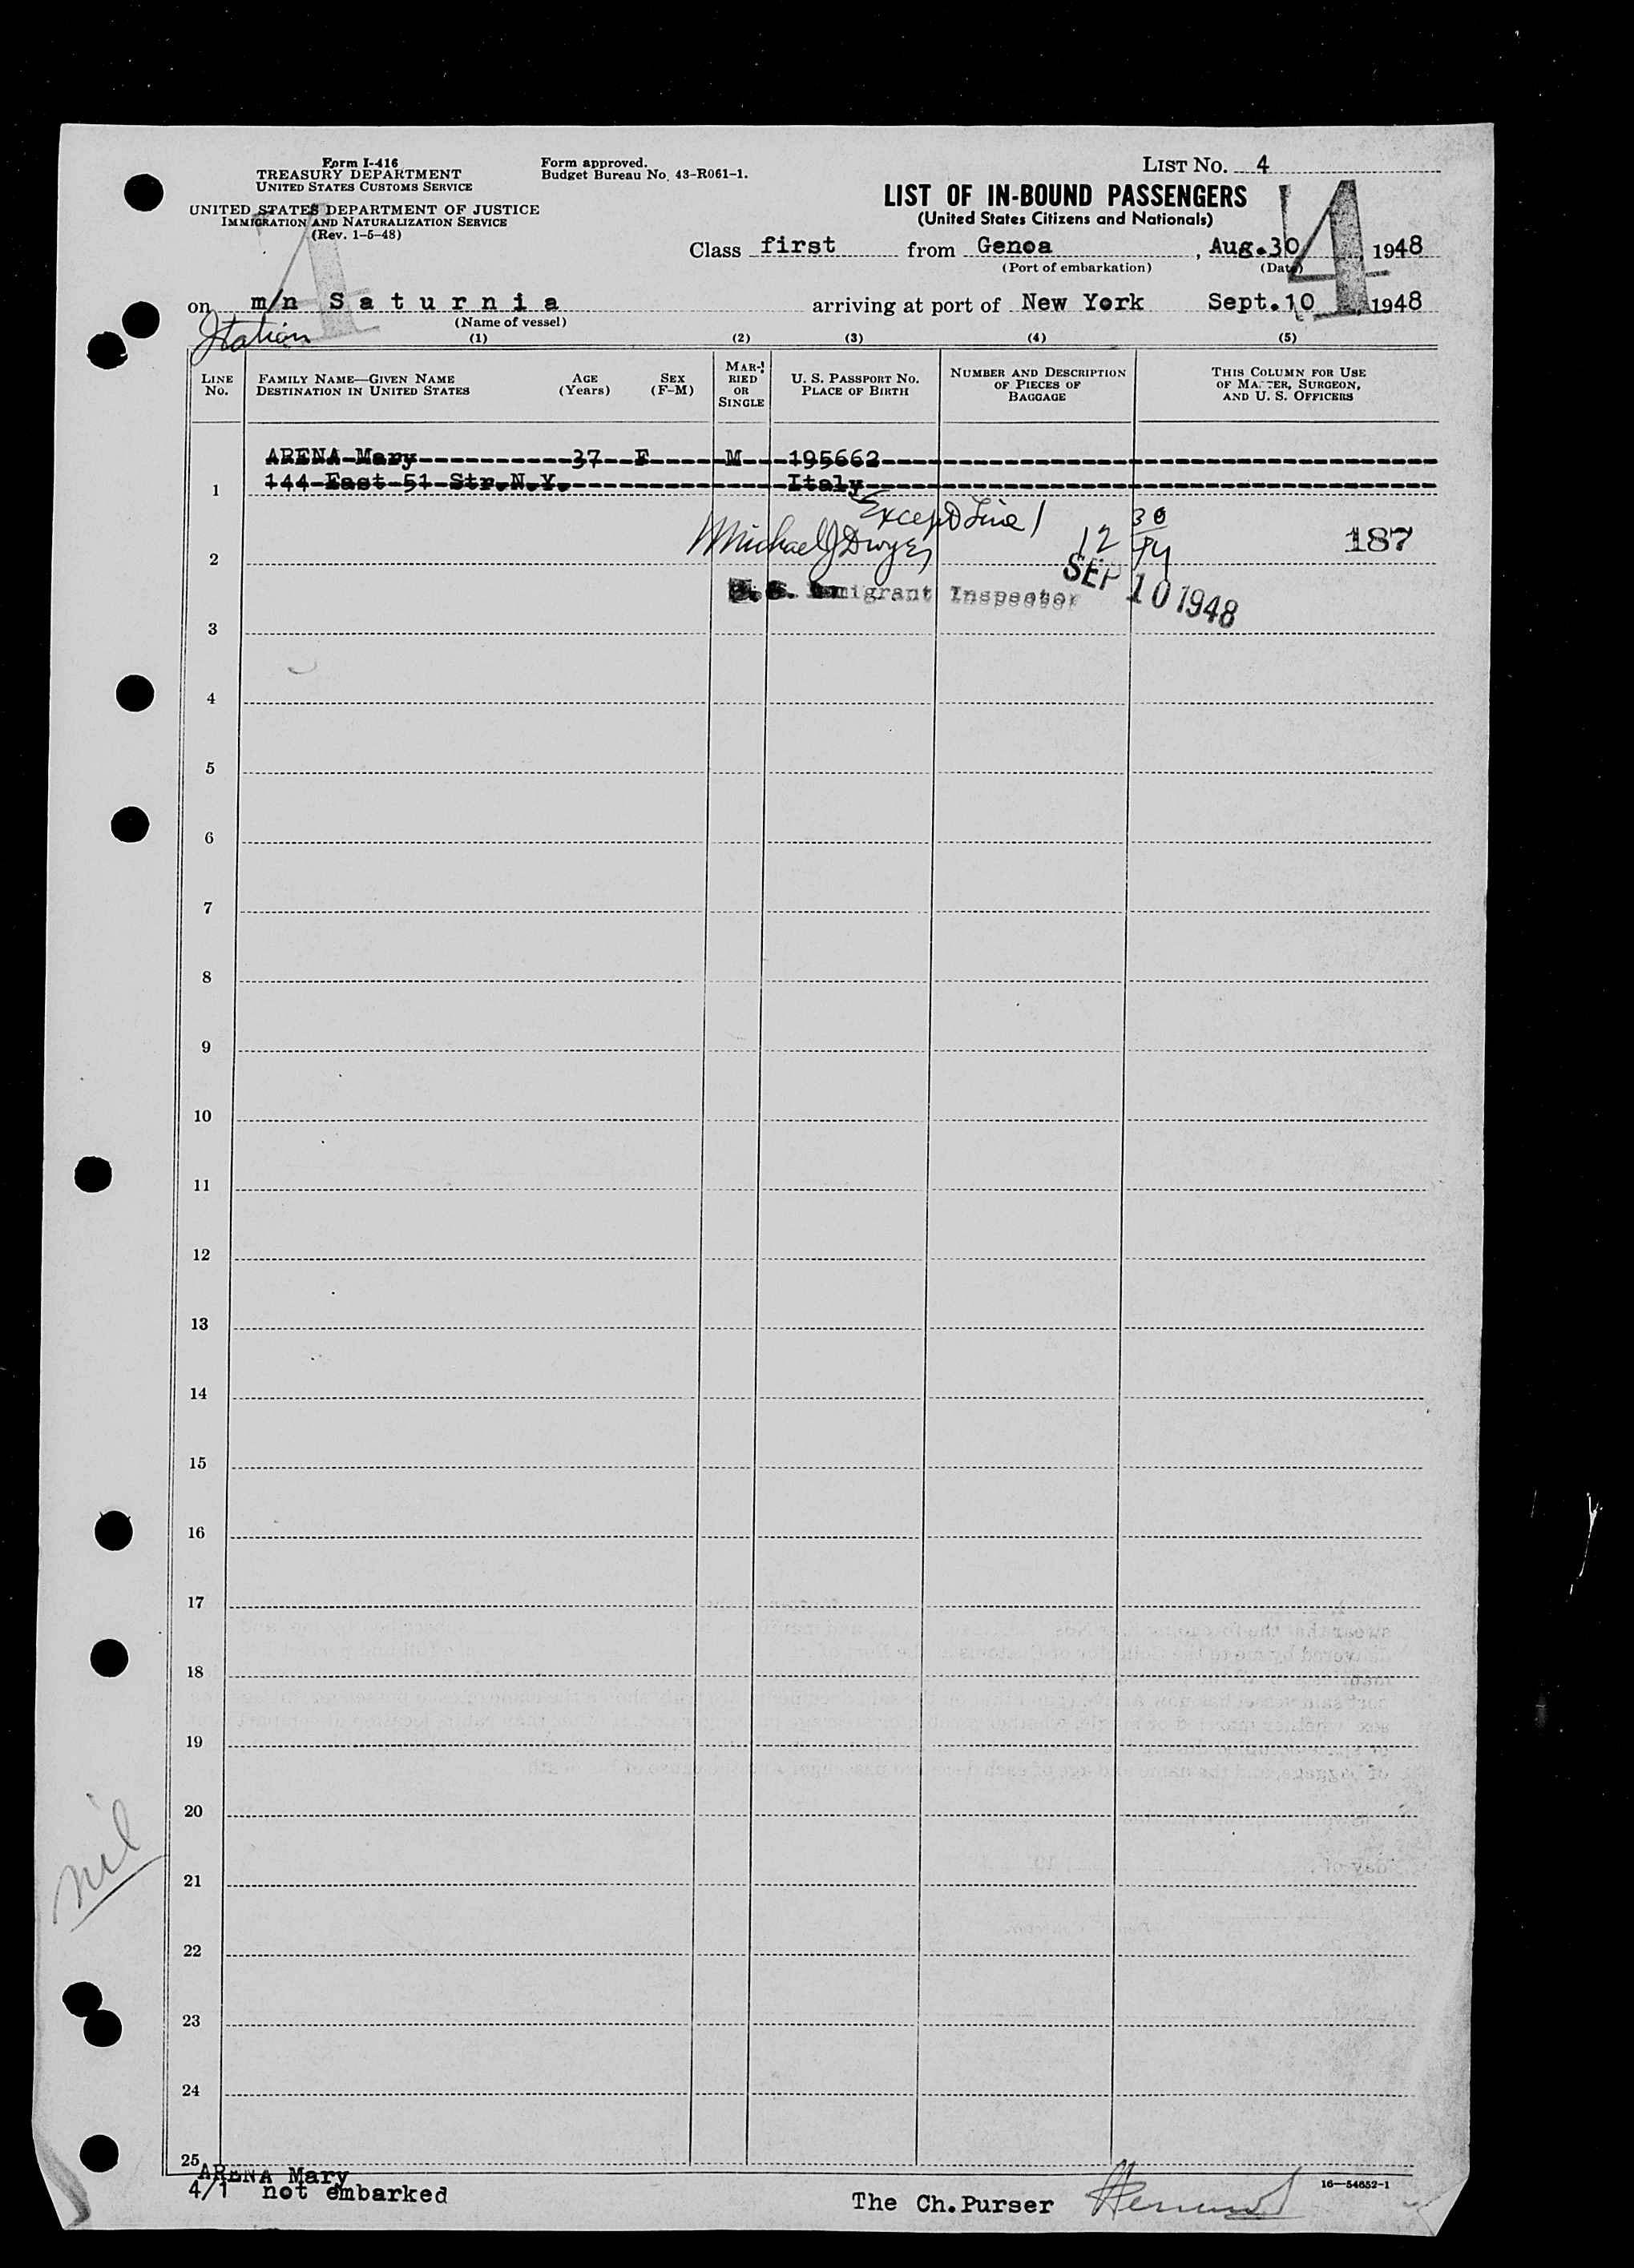 Form I-416
TREASURY DEPARTMENT
UNITED STATES CUSTOMS SERVICE
UNITED STATES DEPARTMENT OF JUSTICE
IMMIGRATION AND NATURALIZATION SERVICE
(Rev. 1-5-48)
Form approved.
Budget Bureau No. 43-R061-1.
LIST No. 4
LIST OF IN-BOUND PASSENGERS
(United States Citizens and Nationals)
4
4
Class first from Genoa, Aug.30, 1948
(Port of embarkation) (Date)
on m/n Saturnia arriving at port of New York Sept.10, 1948
(Name of vessel)
Italian
(1) (2) (3) (4) (5)
LINE No.
FAMILY NAME—GIVEN NAME
DESTINATION IN UNITED STATES
AGE (Years)
SEX (F-M)
MARRIED OR SINGLE
U. S. PASSPORT No.
PLACE OF BIRTH
NUMBER AND DESCRIPTION OF PIECES OF BAGGAGE
THIS COLUMN FOR USE OF MASTER, SURGEON, AND U. S. OFFICERS
ARENA Mary 37 F M 195662
1 144 East 51 Str.N.Y. Italy
Except Line 1
Michael J Dwyer
12 30
187
2
U.S. Immigrant Inspector
SEP 10 1948
3
4
5
6
7
8
9
10
11
12
13
14
15
16
17
18
19
20
nil
21
22
23
24
25
ARENA Mary
4/1 not embarked
The Ch.Purser
16—54652-1